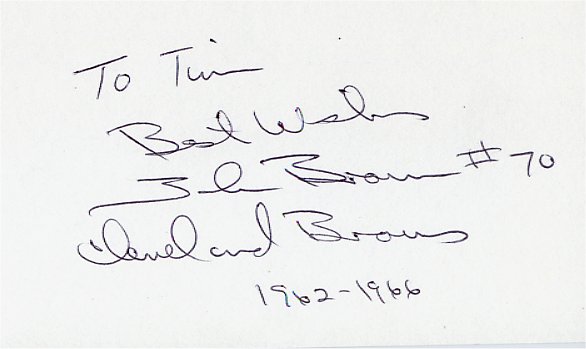 To Tim
Best Wishes
John Brown #70
Cleveland Browns
1962-1966